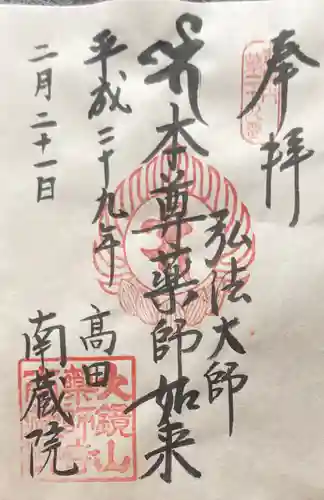 奉拝
弘法大師
本尊薬師如来
平成二十九年
二月二十一日
高田
南蔵院
大鏡山
薬師寺
南蔵院